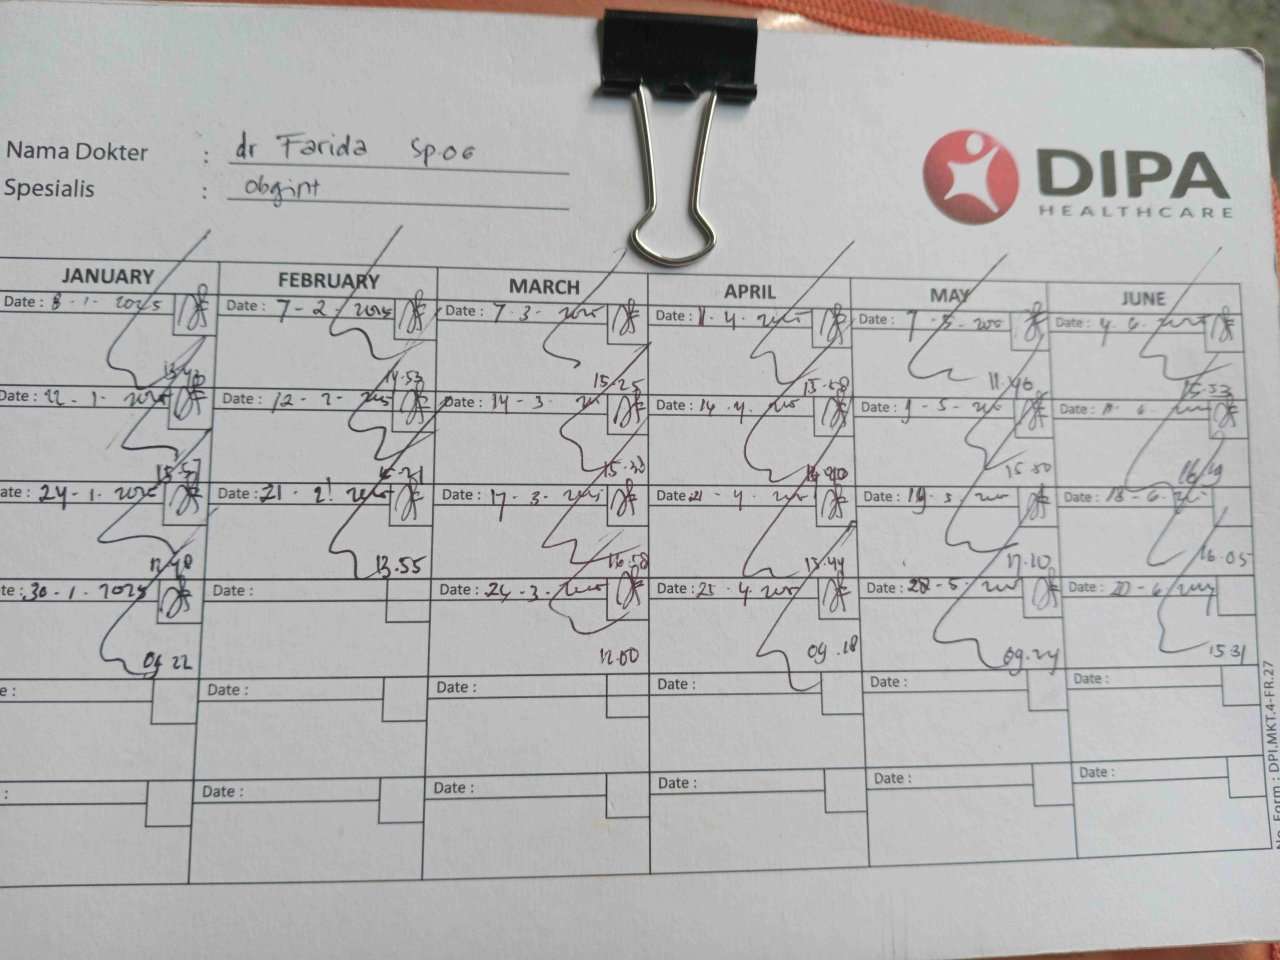 Nama Dokter : dr Farida Sp.OG
Spesialis : Obgint
DIPA
HEALTHCARE
JANUARY FEBRUARY MARCH APRIL MAY JUNE
Date : 8 - 1 - 2025 Date : 7 - 2 - 2025 Date : 7 - 3 - 2025 Date : - 4 - 2025 Date : 7 - 5 - 2025 Date : 4 - 6 - 2025
13.43 14.53 15.25 15.58 11.46 15.53
Date : 22 - 1 - 2025 Date : 12 - 2 - 2025 Date : 14 - 3 - 2025 Date : 14 - 4 - 2025 Date : 9 - 5 - 2025 Date : - 6 - 2025
15.57 15.31 15.30 14.40 15.50 16.19
ate : 24 - 1 - 2025 Date : 21 - 2 - 2025 Date : 17 - 3 - 2025 Date : 21 - 4 - 2025 Date : 19 - 5 - 2025 Date : 18 - 6 -
12.48 13.55 16.58 13.44 17.10 16.05
te : 30 - 1 - 2025 Date : Date : 24 - 3 - 2025 Date : 25 - 4 - 2025 Date : 28 - 5 - 2025 Date : 20 - 6 -
09.22 12.00 09.18 09.24 15.31
e : Date : Date : Date : Date : Date :
: Date : Date : Date : Date : Date :
No. Form : DPI.MKT.4-FR.27